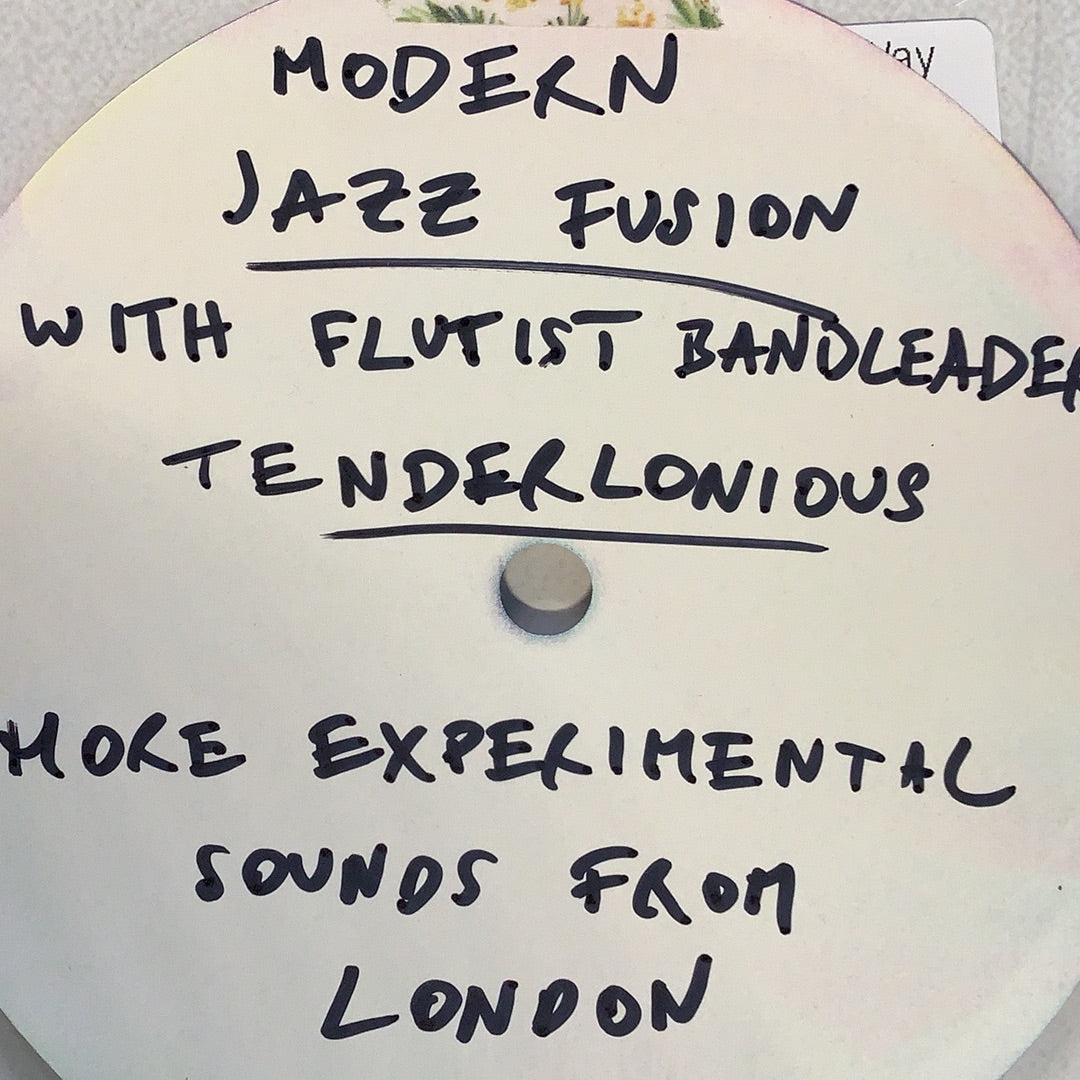 MODERN
JAZZ FUSION
WITH FLUTIST BANDLEADER
TENDERLONIOUS
MORE EXPERIMENTAL
SOUNDS FROM
LONDON